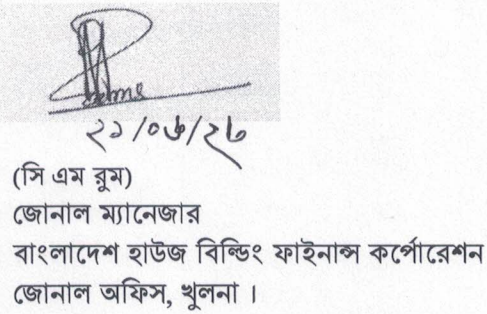 ২১/০৬/২৬
(সি এম রুম)
জোনাল ম্যানেজার
বাংলাদেশ হাউজ বিল্ডিং ফাইনান্স কর্পোরেশন
জোনাল অফিস, খুলনা ।